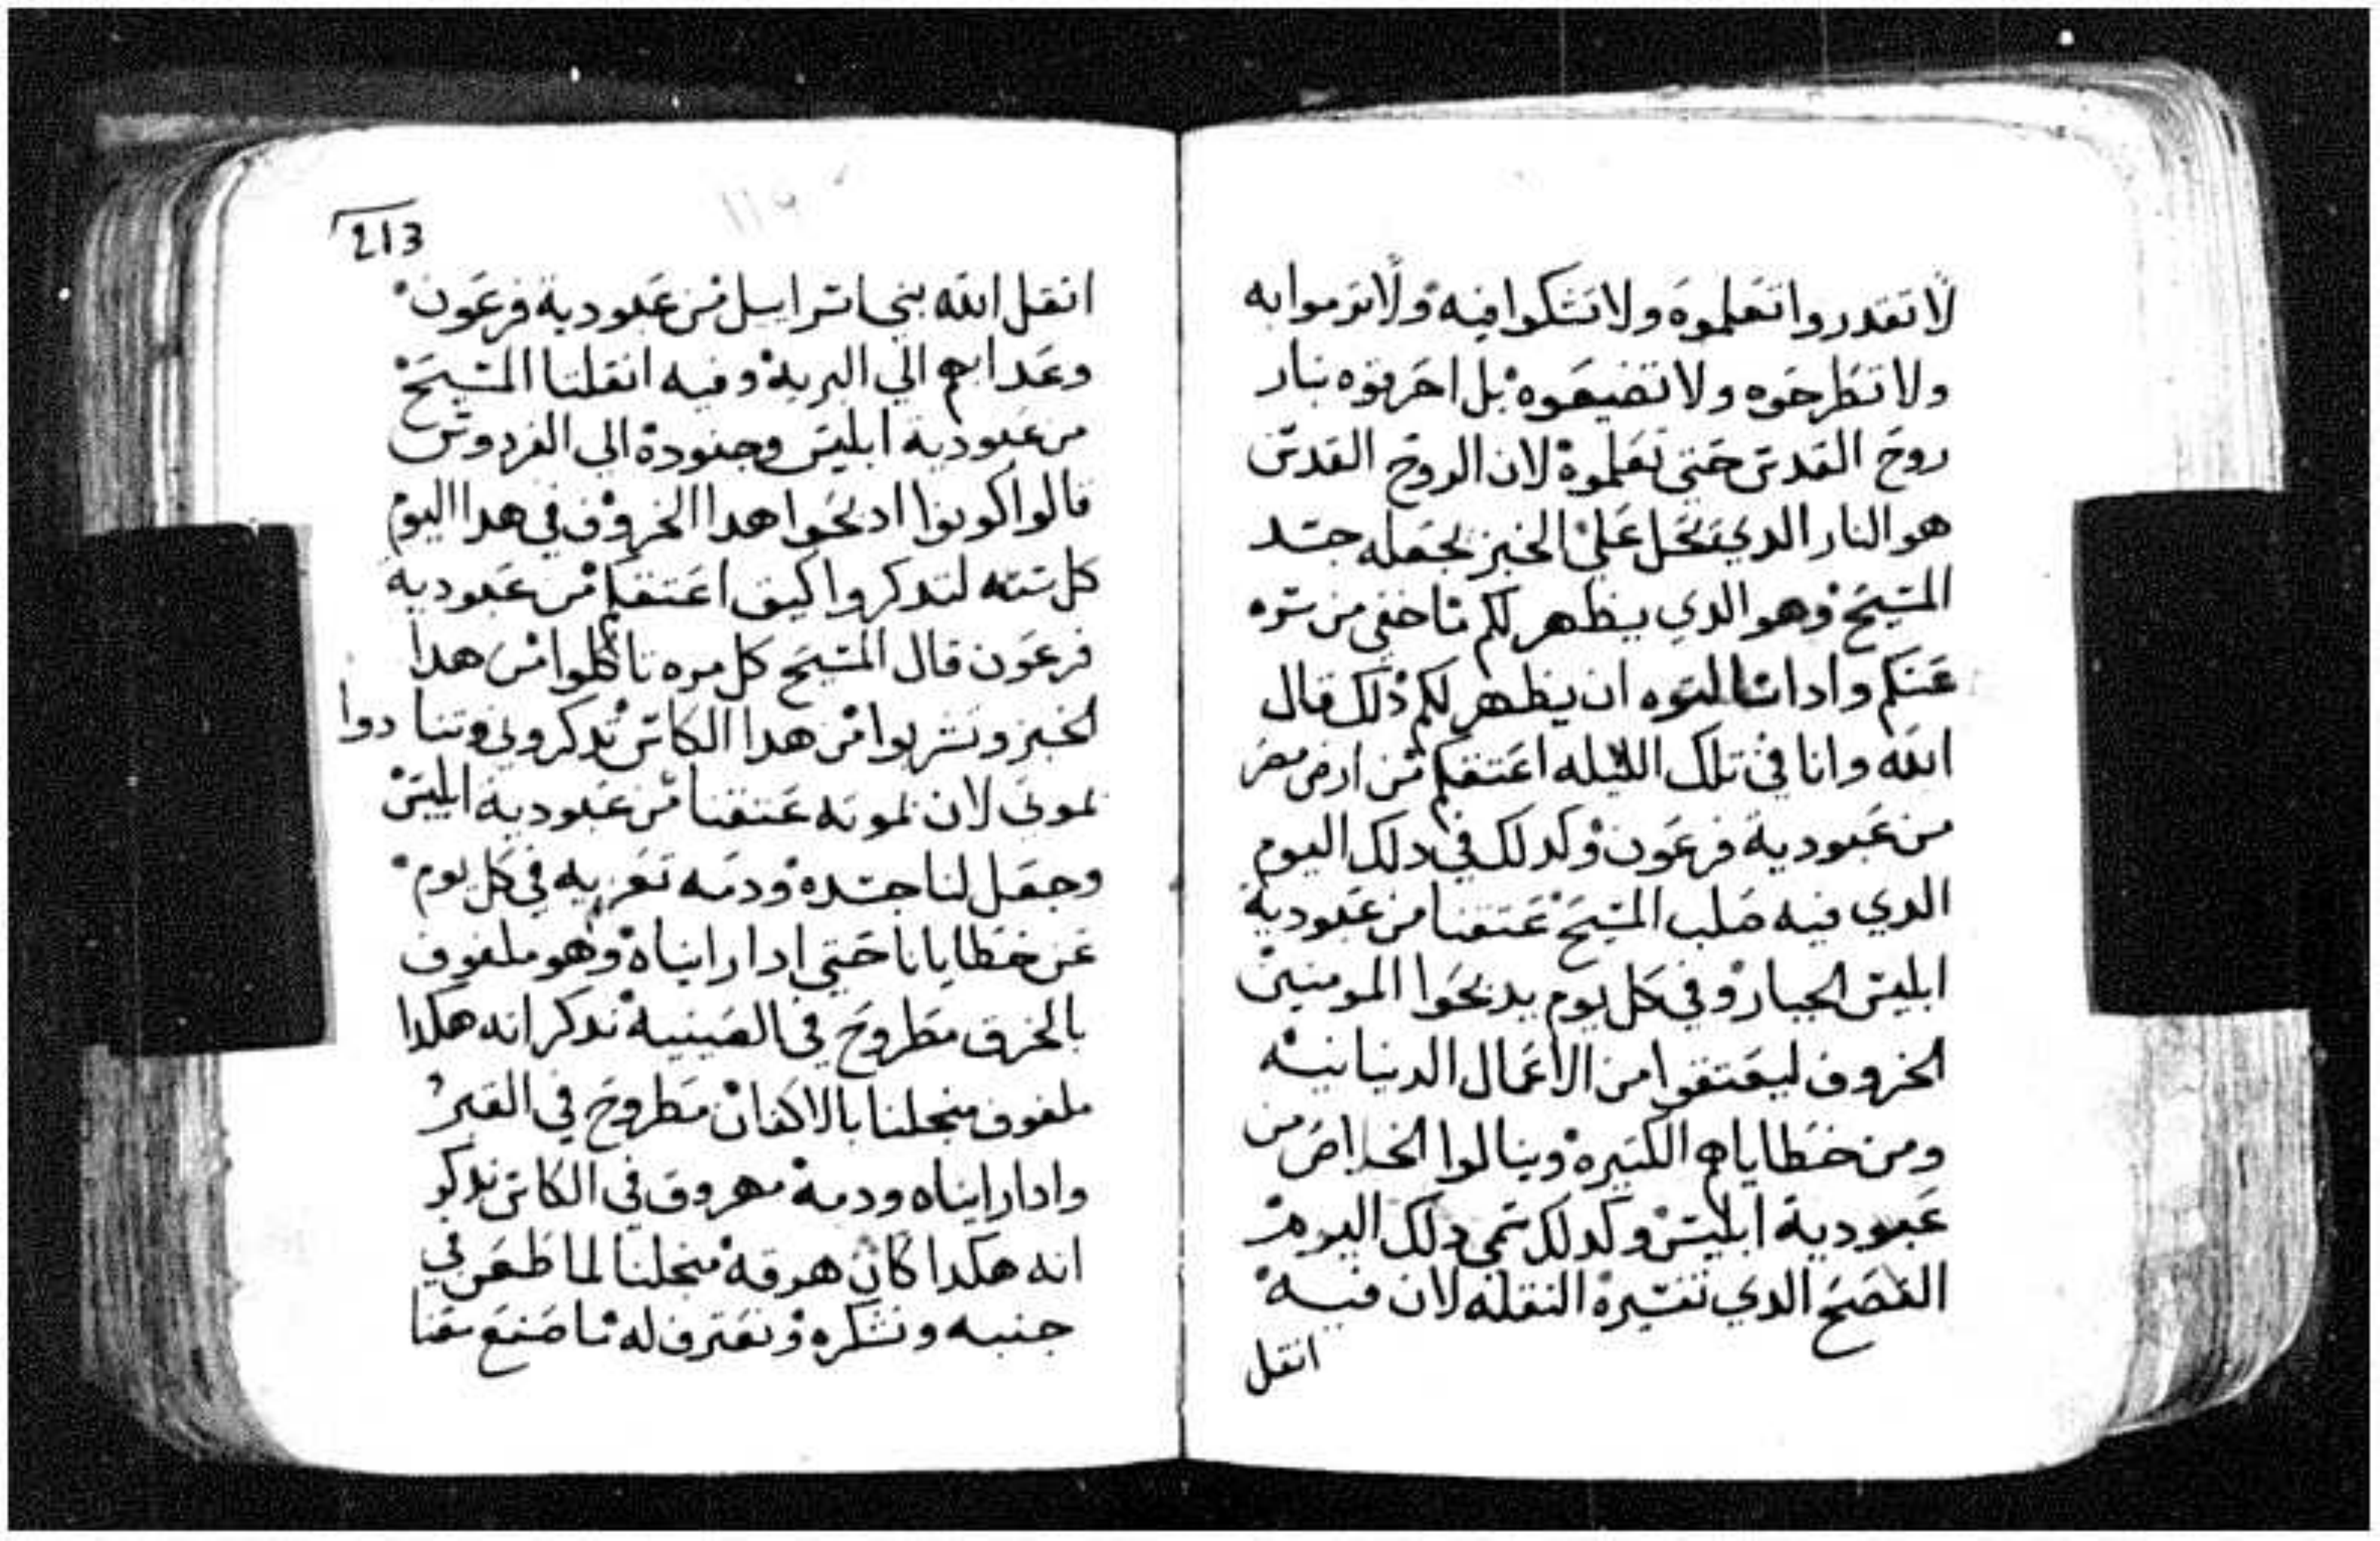 لا تقدروا تعلموه ولا تشكوا فيه ولا ترموا به
ولا تطرحوه ولا تضيعوه بل احرقوه بنار
روح القدس حتي تعلموه لان الروح القدس
هو النار الدي تحل علي الخبز تجعله جسد
المسيح وهو الدي يظهر لكم ما خفي من سره
عنكم وادا سالتوه ان يظهر لكم دلك قال
الله وانا في تلك الليله اعتقكم من ارض مصر
من عبودية فرعون وكدلك في دلك اليوم
الدي فيه صلب المسيح عتقنا من عبودية
ابليس الجبار وفي كل يوم يدبحوا المومنين
الخروف ليعتقوا من الاعمال الدنيانيه
ومن خطاياهم الكتيره وينالوا الخلاص من
عبودية ابليس وكدلك سمي دلك اليوم
الفصح الدي تفسيره النقله لان فيه
انقل
213
انقل الله بني اسراييل من عبودية فرعون
وعداهم الي البريه وفيه انقلنا المسيح
من عبودية ابليس وجنوده الي الفردوس
قالوا كونوا ادبحوا هدا الخروف في هدا اليوم
كل سنه لتدكروا كيف اعتقكم من عبودية
فرعون قال المسيح كل مره تاكلوا من هدا
الخبز وتشربوا من هدا الكاس تدكروني وتنادوا
بموتي لان بموته عتقنا من عبودية ابليس
وجعل لنا جسده ودمه تعزيه في كل يوم
عن خطايانا حتي ادا رايناه وهو ملفوف
بالخرق مطروح في الصينيه ندكر انه هكدا
ملفوف من اجلنا بالاكفان مطروح في القبر
وادا رايناه ودمه مهروق في الكاس ندكر
انه هكدا كان هرقه من اجلنا لما طعن في
جنبه ونشكره ونعترف له ما صنع معنا